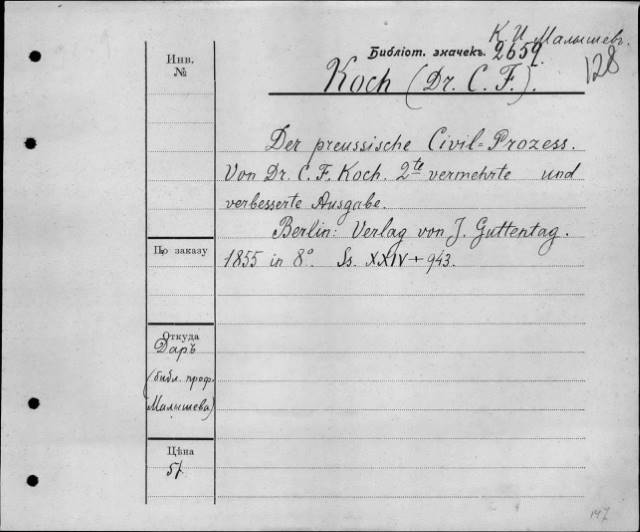 К. И. Малышевъ.
Библіот. значекъ. 2659.
128
Koch (Dr. C. F.).
Инв.
№
Der preussische Civil=Prozess.
Von Dr. C. F. Koch. 2te vermehrte und
verbesserte Ausgabe.
Berlin: Verlag von J. Guttentag.
1855 in 8°. Ss. XXIV + 943.
По заказу
Откуда
Даръ
(библ. проф.
Малышева)
Цѣна